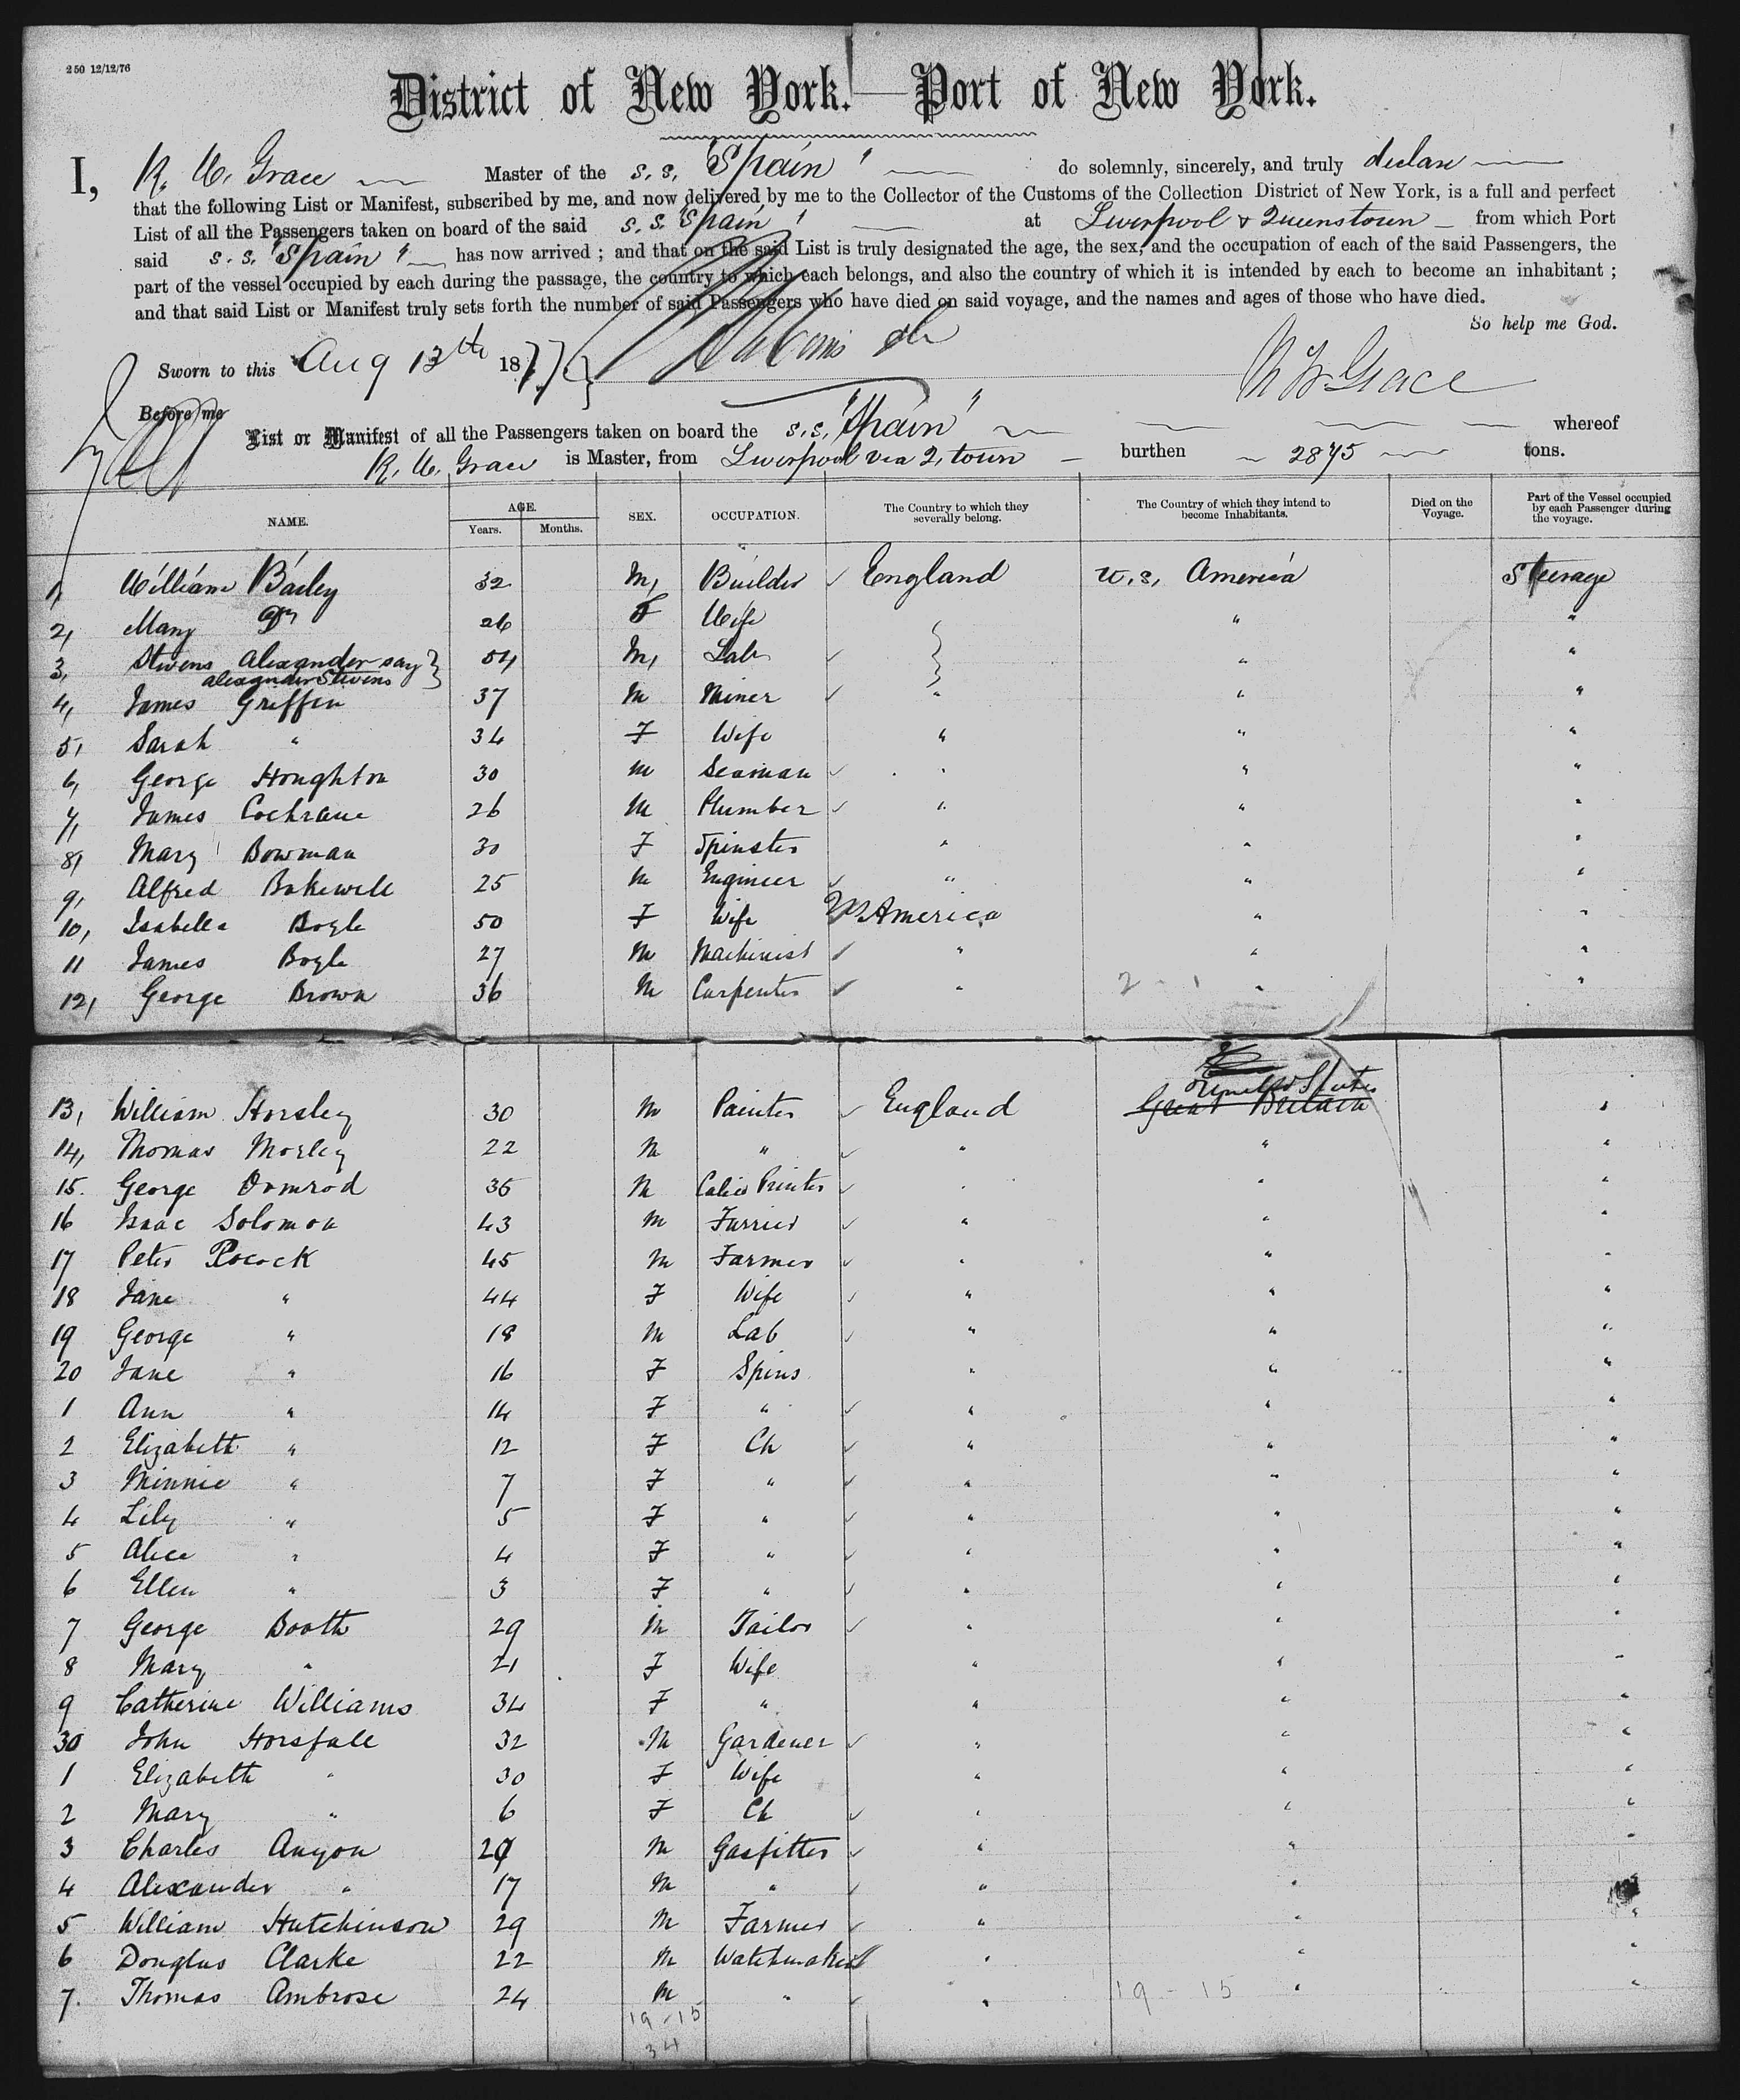 250 12/12/76
District of New York.—Port of New York.
I, R. W. Grace Master of the s.s. "Spain" do solemnly, sincerely, and truly declare
that the following List or Manifest, subscribed by me, and now delivered by me to the Collector of the Customs of the Collection District of New York, is a full and perfect
List of all the Passengers taken on board of the said s.s. "Spain" at Liverpool & Queenstown from which Port
said s.s. "Spain" has now arrived ; and that on the said List is truly designated the age, the sex, and the occupation of each of the said Passengers, the
part of the vessel occupied by each during the passage, the country to which each belongs, and also the country of which it is intended by each to become an inhabitant ;
and that said List or Manifest truly sets forth the number of said Passengers who have died on said voyage, and the names and ages of those who have died.
So help me God.
Sworn to this Aug 13th 187 R W Grace
Before me
List or Manifest of all the Passengers taken on board the s.s. "Spain" whereof
R. W. Grace is Master, from Liverpool via Q. town burthen 2875 tons.
NAME. AGE. Years. Months. SEX. OCCUPATION. The Country to which they severally belong. The Country of which they intend to become Inhabitants. Died on the Voyage. Part of the Vessel occupied by each Passenger during the voyage.
1, William Bailey 32 M, Builder ✓ England U.S. America Steerage
2, Mary Do 26 F Wife " "
3, Stivens Alexander say } 54 M, Lab ✓ " "
Alexander Stivens
4, James Griffin 37 M Miner ✓ " " "
5, Sarah " 34 F Wife " " "
6, George Houghton 30 M Seaman ✓ " " "
7, James Cochrane 26 M Plumber ✓ " " "
8, Mary Bowman 30 F Spinster " " "
9, Alfred Bakewell 25 M Engineer ✓ " " "
10, Isabella Bogle 50 F Wife US America " "
11 James Bogle 27 M Machinist ✓ " " "
12, George Brown 36 M Carpenter ✓ " " "
2 - 1
United States
13, William Horsley 30 M Painter ✓ England Great Britain "
14, Thomas Morley 22 M " ✓ " " "
15. George Ormrod 35 M Calico Printer ✓ " " "
16 Isaac Solomon 43 M Furrier ✓ " " "
17 Peter Pocock 45 M Farmer ✓ " " "
18 Jane " 44 F Wife ✓ " " "
19 George " 18 M Lab ✓ " " "
20 Jane " 16 F Spins " " "
1 Ann " 14 F " ✓ " " "
2 Elizabeth " 12 F Ch ✓ " " "
3 Minnie " 7 F " ✓ " " "
4 Lily " 5 F " ✓ " " "
5 Alice " 4 F " ✓ " " "
6 Ellen " 3 F " ✓ " " "
7 George Booth 29 M Tailor ✓ " " "
8 Mary " 21 F Wife " " "
9 Catherine Williams 34 F " " " "
30 John Horsfall 32 M Gardener ✓ " " "
1 Elizabeth " 30 F Wife " " "
2 Mary " 6 F Ch ✓ " " "
3 Charles Anyon 29 M Gasfitter ✓ " " "
4 Alexander " 17 M " ✓ " "
5 William Hutchinson 29 M Farmer ✓ " " "
6 Douglas Clarke 22 M Watchmaker " " "
7. Thomas Ambrose 24 M " ✓ " " "
19 - 15 19 - 15
34